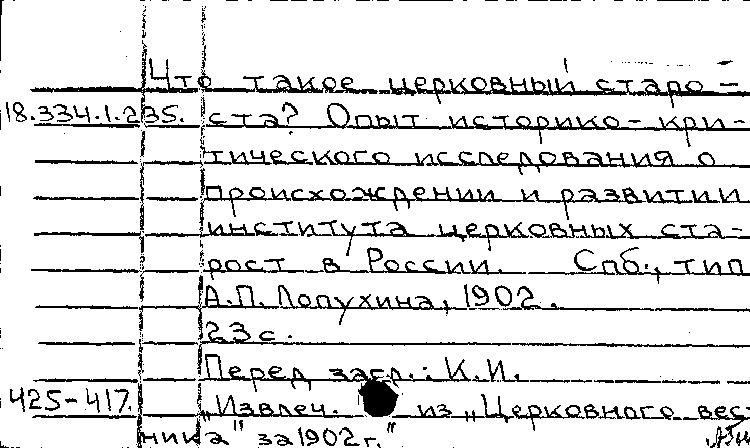 Что такое церковный старо-
18.334.1.235. ста? Опыт историко-кри-
тического исследования о
происхождении и развитии
института церковных ста-
рост в России. Спб., тип
А.П. Лопухина, 1902.
23с.
Перед загл.: К.И.
425-417. „Извлеч. из „Церковного вес
ника" за 1902г."